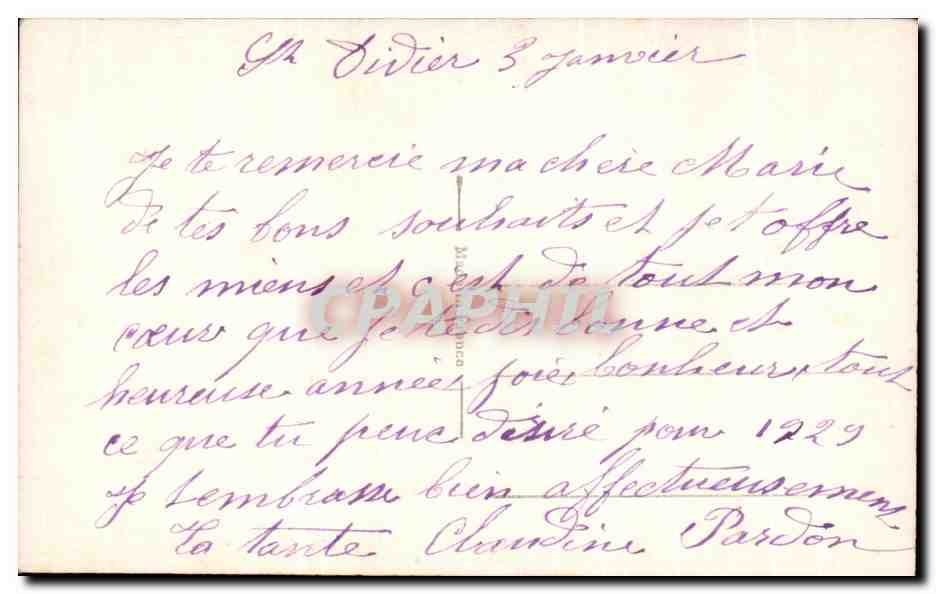 St Didier 3 Janvier
Je te remercie ma chère Marie
de tes bons souhaits et je t offre
les miens et c'est de tout mon
cœur que je te dis bonne et
heureuse année joie bonheur, tout
ce que tu peux désiré pour 1929
Je t embrasse bien affectueusement
Ta tante Claudine Pardon
CPAPHIL